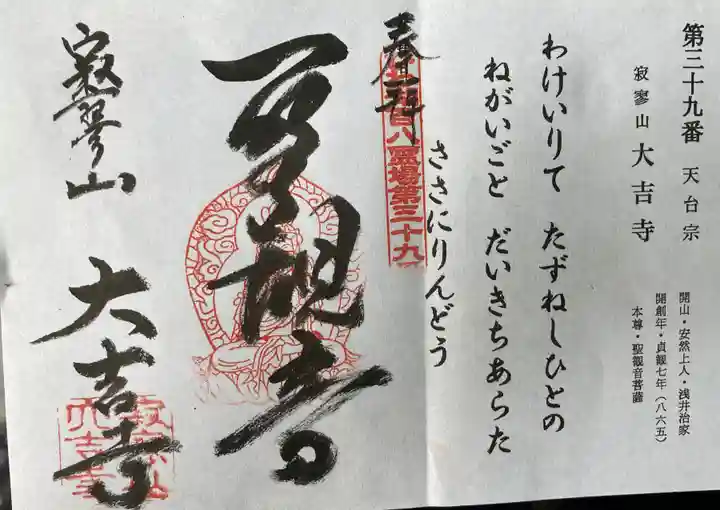 第三十九番 天台宗
寂寥山 大吉寺
開山・安然上人・浅井治家
開創年・貞観七年(八六五)
本尊・聖観音菩薩
わけいりて たずねしひとの
ねがいごと だいきちあらた
ささにりんどう
奉拝
百八霊場第三十九
聖観音
寂寥山 大吉寺